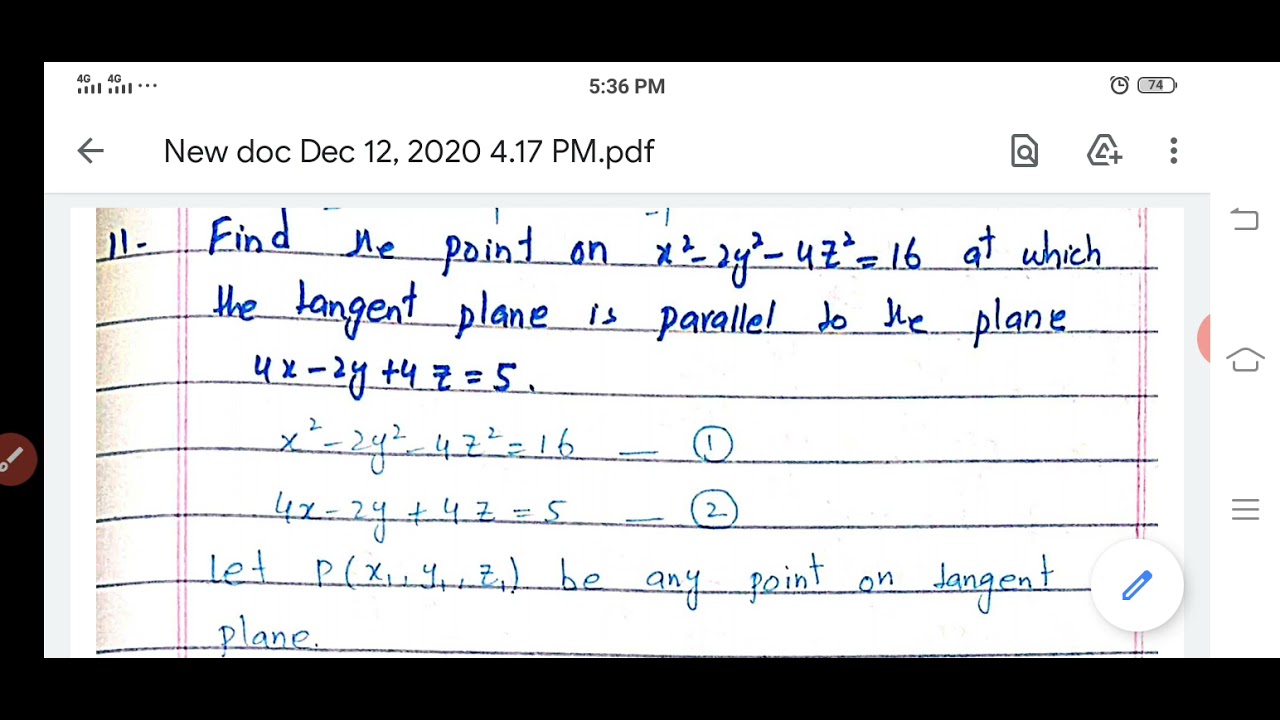 4G 4G ... 5:36 PM 74
New doc Dec 12, 2020 4.17 PM.pdf
11- Find the point on x²-2y²-4z²=16 at which
the tangent plane is parallel to the plane
4x-2y+4z=5.
x²-2y²-4z²=16 — ①
4x-2y+4z=5 — ②
Let P(x₁,y₁,z₁) be any point on tangent
plane.